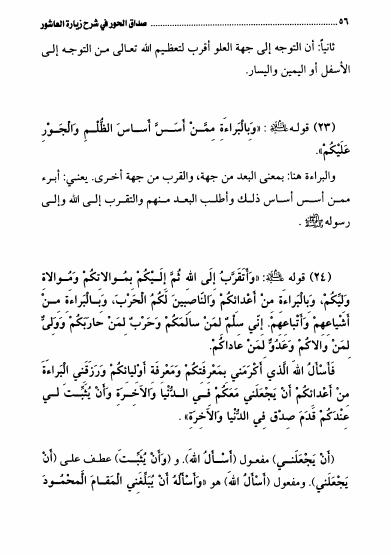 ٥٦ ........ صداق الحور في شرح زيارة العاشور
ثانياً: أن التوجه إلى جهة العلو أقرب لتعظيم الله تعالى من التوجه إلى
الأسفل أو اليمين واليسار.
(٢٣) قوله: «وَبِالْبَراءَةِ مِمَّنْ أَسَّسَ أَساسَ الظُّلْمِ وَالْجَوْرِ
عَلَيْكُمْ».
والبراءة هنا: بمعنى البعد من جهة، والقرب من جهة أخرى. يعني: أبرء
ممن أسس أساس ذلك وأطلب البعد منهم والتقرب إلى الله وإلى
رسوله ﷺ.
(٢٤) قوله: «وَأَتَقَرَّبُ إِلَى الله ثُمَّ إِلَيْكُمْ بِمُوالاتِكُمْ وَمُوالاةِ
وَلِيِّكُمْ، وَبِالْبَراءَةِ مِنْ أَعْدائِكُمْ وَالنَّاصِبِينَ لَكُمُ الْحَرْبَ، وَبِالْبَراءَةِ مِنْ
أَشْياعِهِمْ وَأَتْباعِهِمْ. إِنِّي سِلْمٌ لِمَنْ سالَمَكُمْ وَحَرْبٌ لِمَنْ حارَبَكُمْ وَوَلِيٌّ
لِمَنْ والاكُمْ وَعَدُوٌّ لِمَنْ عاداكُمْ.
فَأَسْأَلُ اللهَ الَّذِي أَكْرَمَنِي بِمَعْرِفَتِكُمْ وَمَعْرِفَةِ أَوْلِيائِكُمْ وَرَزَقَنِي الْبَراءَةَ
مِنْ أَعْدائِكُمْ أَنْ يَجْعَلَنِي مَعَكُمْ فِي الدُّنْيا وَالآخِرَةِ وَأَنْ يُثَبِّتَ لِي
عِنْدَكُمْ قَدَمَ صِدْقٍ فِي الدُّنْيا وَالآخِرَةِ».
(أَنْ يَجْعَلَنِي) مفعول (أَسْأَلُ اللهَ). و (وَأَنْ يُثَبِّتَ) عطف على (أَنْ
يَجْعَلَنِي). ومفعول (أَسْأَلُ اللهَ) هو «وَأَسْأَلُهُ أَنْ يُبَلِّغَنِي الْمَقامَ الْمَحْمُودَ